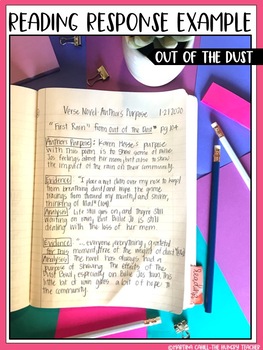 READING RESPONSE EXAMPLE
OUT OF THE DUST
Verse Novel Author's Purpose 1/21/2020
"First Rain" from Out of the Dust Pg 109
Author's Purpose: Karen Hesse's purpose
with this poem is to show some of
Jo's feelings about her mom, but also to show
the impact of the rain on their community.
Evidence: "I place a wet cloth over my nose to keep
from breathing dust and wipe the grime
tracings from around my mouth, and shiver,
thinking of Ma"
Analysis: Life still goes on, and they're still
waiting on rain, but Billie Jo is still
dealing with the loss of her
mom.
Evidence: "... everyone, grateful
for this of dust"
Analysis: The novel has always had a
purpose of showing the effects of the
Dust Bowl, especially on Billie Jo's town. This
little bit of rain gives a bit of hope to
the community.
Reading
©MARTINA CAHILL-THE HUNGRY TEACHER